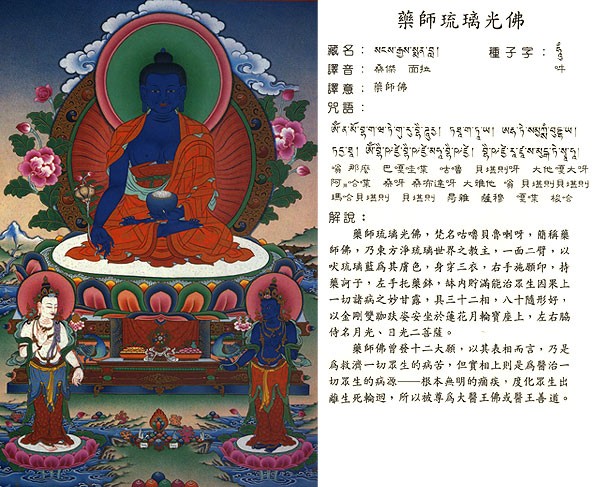 藥師琉璃光佛
藏名：སངས་རྒྱས་སྨན་བླ། 種子字：ཧཱུྃ
譯音：桑傑 面拉 吽
譯意：藥師佛
咒語：
嗡 那麼 巴嘎哇葉 咕嚕 貝堪則呀 大他嘎大耶
瑪哈貝堪則 貝堪則 局雜 薩穆 嘎葉 梭哈
解說：
藥師琉璃光佛，梵名咕嚕貝魯喇呀，簡稱藥
師佛，乃東方淨琉璃世界之教主，一面二臂，以
吠琉璃藍為其膚色，身穿三衣，右手施願印，持
藥訶子，左手托藥鉢，缽內貯滿能治眾生因果上
一切諸病之妙甘露，具三十二相，八十隨形好，
以金剛雙跏趺姿安坐於蓮花月輪寶座上，左右脇
侍名月光、日光二菩薩。
藥師佛曾發十二大願，以其表相而言，乃是
為救濟一切眾生的病苦，但實相上則是為醫治一
切眾生的病源——根本無明的痼疾，度化眾生出
離生死輪迴，所以被尊為大醫王佛或醫王善道。